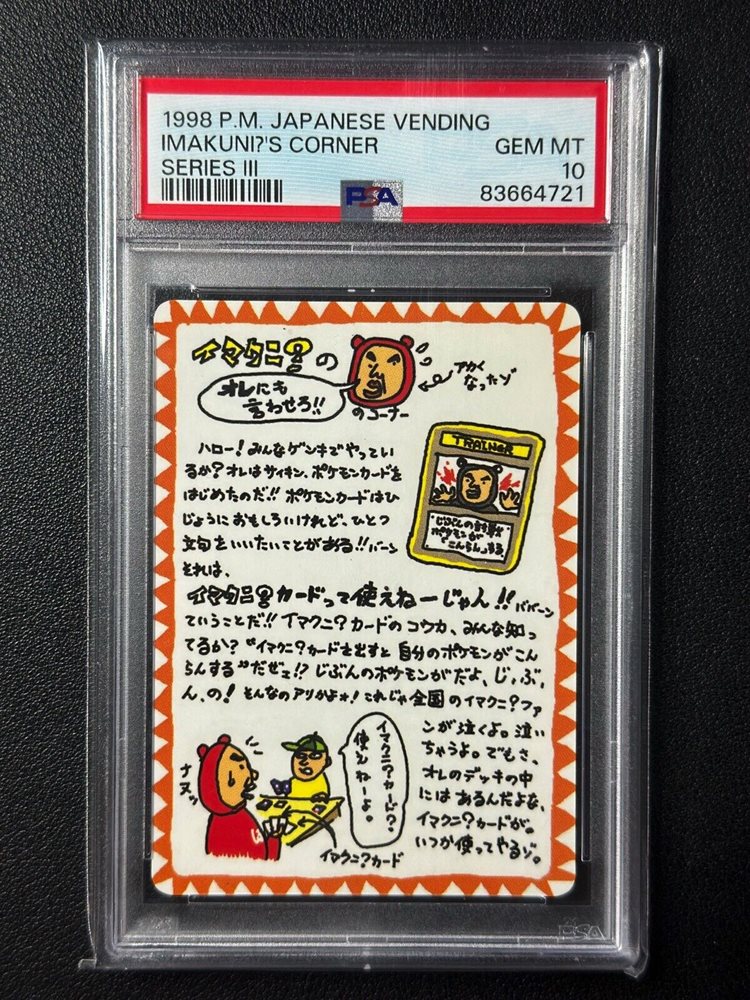 1998 P.M. JAPANESE VENDING
IMAKUNI?'S CORNER GEM MT
SERIES III 10
PSA 83664721
イマクニ?の
オレにも
言わせろ!!
のコーナー
アカく
なったゾ
TRAINER
じぶんの対戦
ポケモンが
"こんらん"する
ハロー!みんなゲンキでやってい
るか?オレはサイキン、ポケモンカードを
はじめたのだ!!ポケモンカードはひ
じょうにおもしろいけれど、ひとつ
文句をいいたいことがある!!バーン
それは、
イマクニ?カードって使えねーじゃん!!ババーン
ていうことだ!!イマクニ?カードのコウカ、みんな知っ
てるか?"イマクニ?カードを出すと自分のポケモンがこん
らんする"だぜェ!?じぶんのポケモンがだよ、じ、ぶ、
ん、の!そんなのアリかよォ!これじゃ全国のイマクニ?ファ
ンが泣くよ。泣い
ちゃうよ。でもさ、
オレのデッキの中
にはあるんだよな、
イマクニ?カードが。
いつか使ってやるゾ。
イマクニ?カード?
使えねーよ。
ナヌッ
イマクニ?カード
PSA